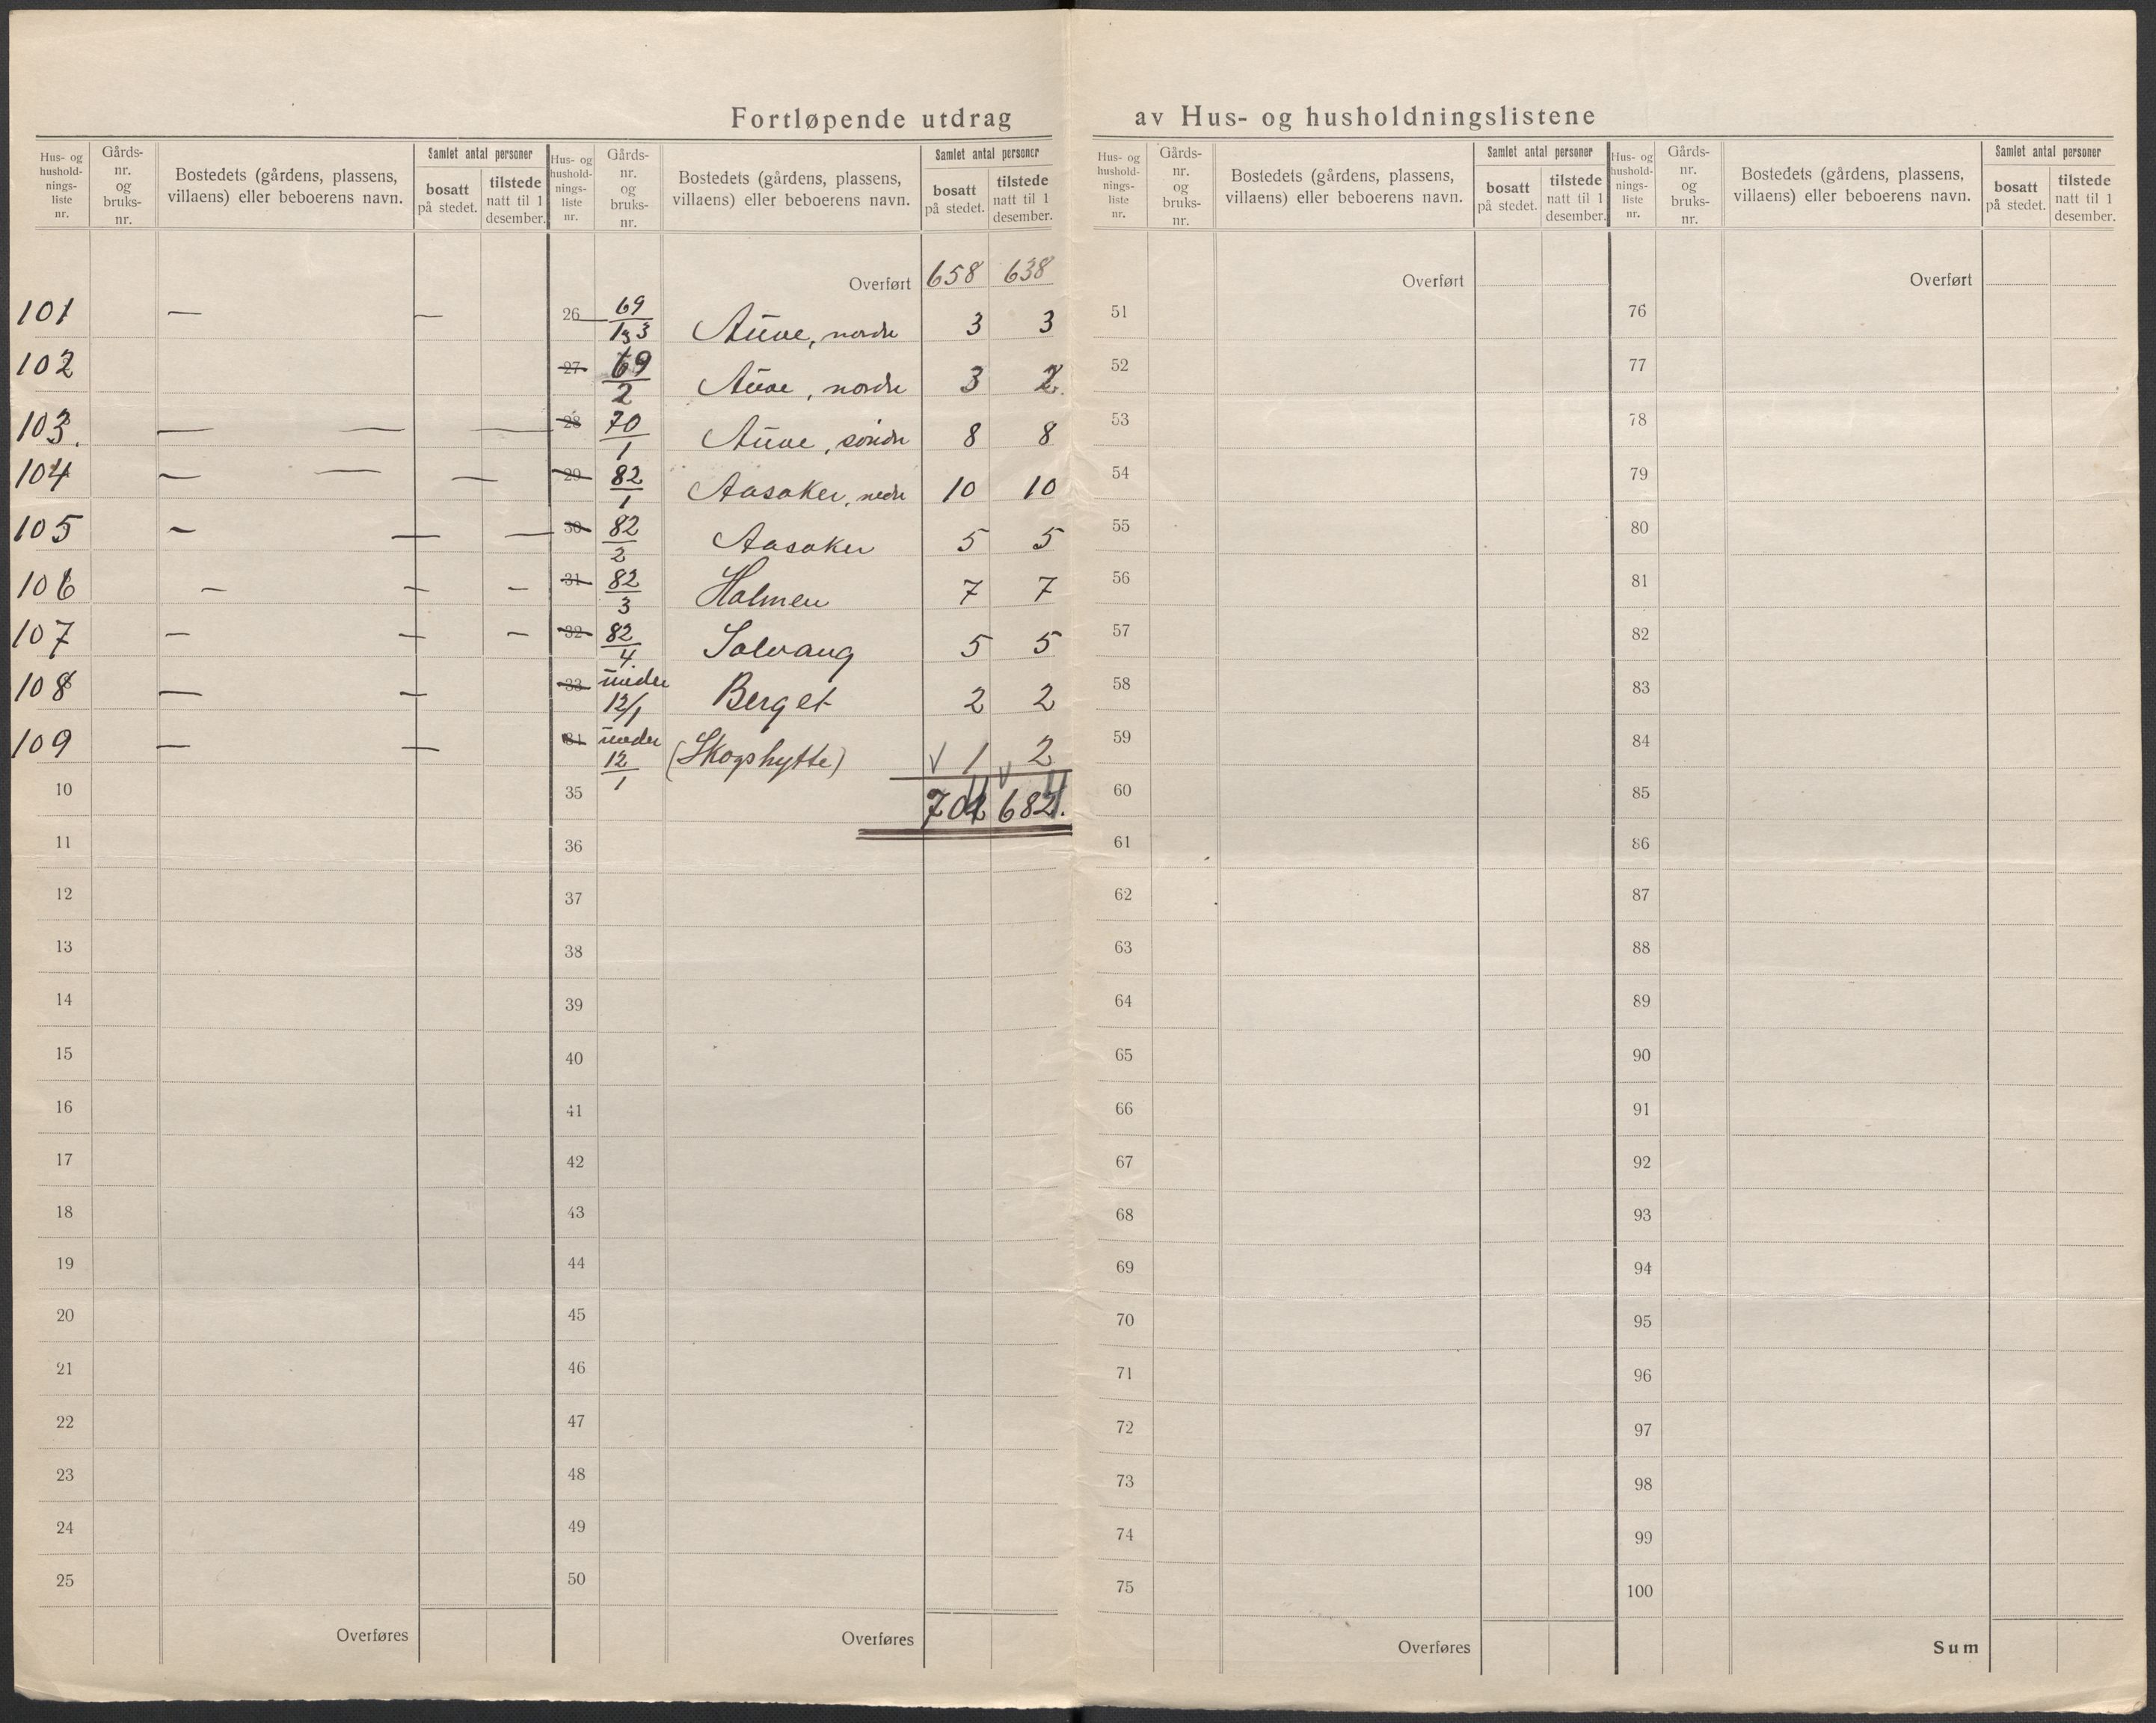 Fortløpende utdrag av Hus- og husholdningslistene
Hus- og hushold- nings- liste nr. | Gårds- nr. og bruks- nr. | Bostedets (gårdens, plassens, villaens) eller beboerens navn. | Samlet antal personer | bosatt på stedet. | tilstede natt til 1 desember.
Hus- og hushold- nings- liste nr. | Gårds- nr. og bruks- nr. | Bostedets (gårdens, plassens, villaens) eller beboerens navn. | Samlet antal personer | bosatt på stedet. | tilstede natt til 1 desember.
Overført 658 638
101 — — 26 69/1,3 Auve, nordre 3 3
102 27 69/2 Auve, nordre 3 2
103. — — — 28 70/1 Auve, söndre 8 8
104 — — — 29 82/1 Aasaker, nedre 10 10
105 — — — 30 82/2 Aasaker 5 5
106 — — — 31 82/3 Holmen 7 7
107 — — — 32 82/4. Solvang 5 5
108 — — 33 under 12/1 Berget 2 2
109 — — 34 under 12/1 (Skogshytte) √ 1 √ 2
10 35 704 684.
11 36
12 37
13 38
14 39
15 40
16 41
17 42
18 43
19 44
20 45
21 46
22 47
23 48
24 49
25 50
Overføres Overføres
Hus- og hushold- nings- liste nr. | Gårds- nr. og bruks- nr. | Bostedets (gårdens, plassens, villaens) eller beboerens navn. | Samlet antal personer | bosatt på stedet. | tilstede natt til 1 desember.
Hus- og hushold- nings- liste nr. | Gårds- nr. og bruks- nr. | Bostedets (gårdens, plassens, villaens) eller beboerens navn. | Samlet antal personer | bosatt på stedet. | tilstede natt til 1 desember.
Overført Overført
51 76
52 77
53 78
54 79
55 80
56 81
57 82
58 83
59 84
60 85
61 86
62 87
63 88
64 89
65 90
66 91
67 92
68 93
69 94
70 95
71 96
72 97
73 98
74 99
75 100
Overføres Sum